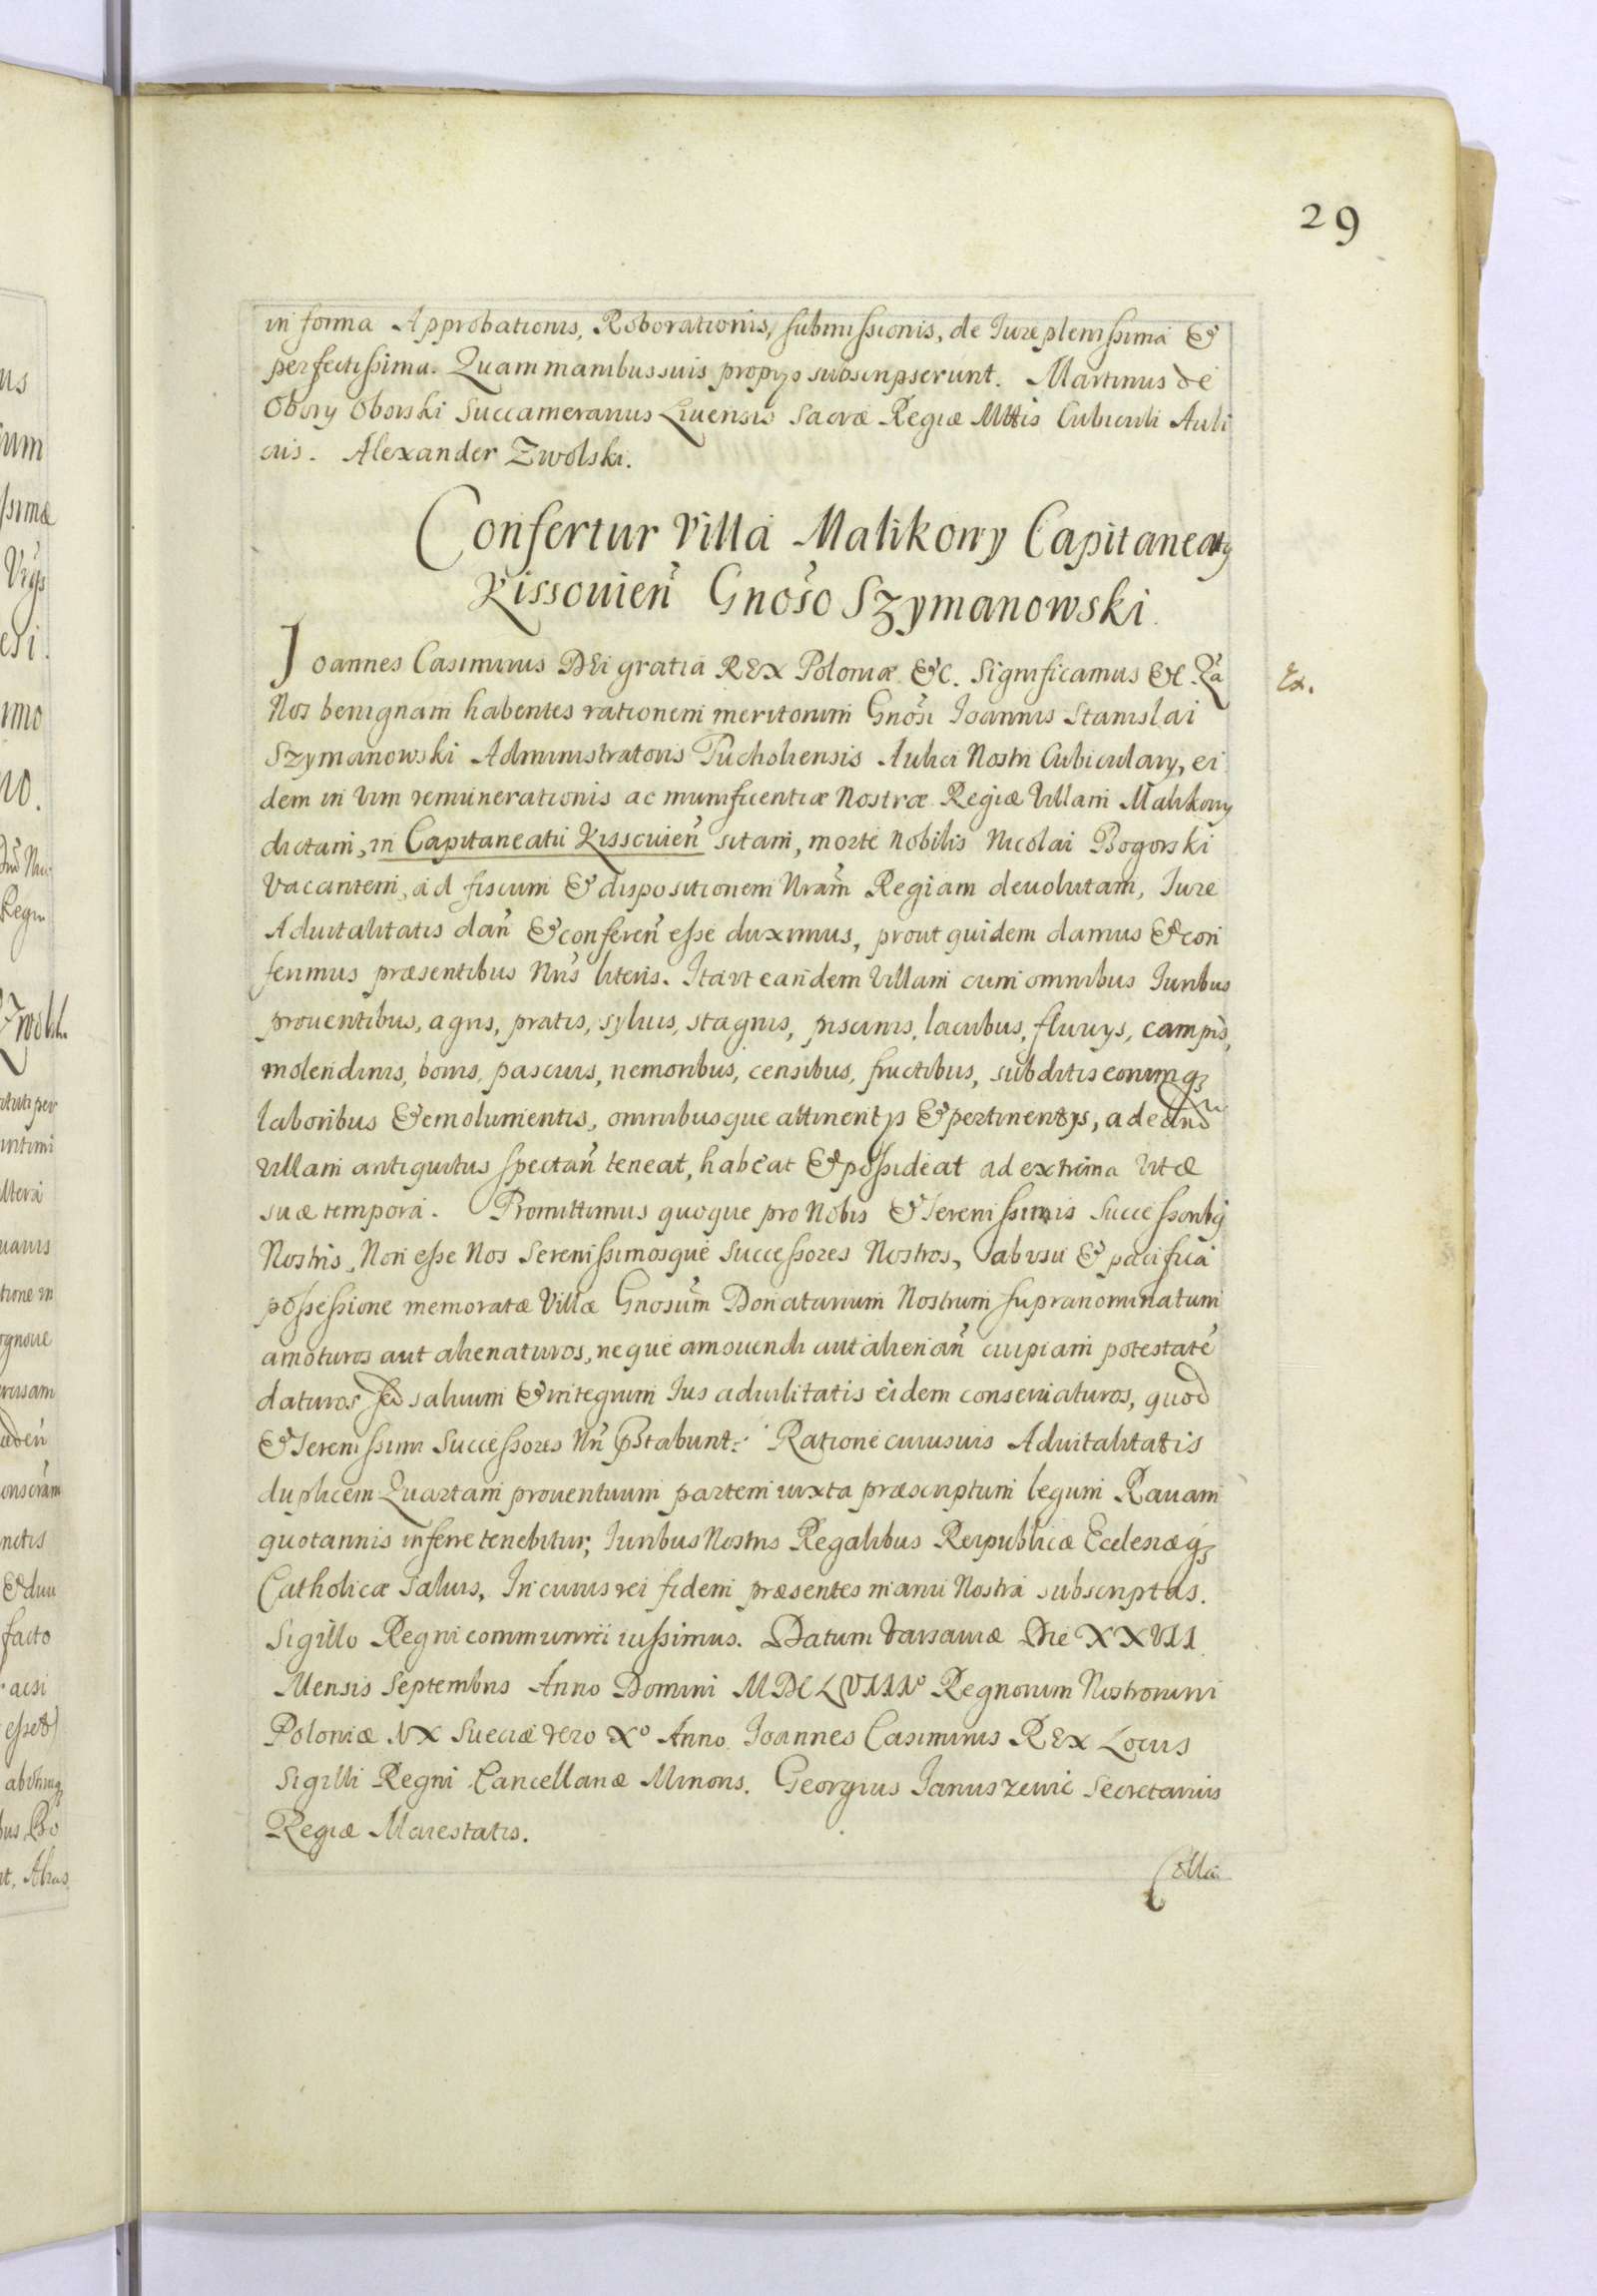 29
in forma Approbationis, Roborationis, submissionis, de Iure plenissima &
perfectissima. Quam manibus suis proprys subscripserunt. Martinus de
Obory Oborski Succamerarius Liuensis Sacræ Regiæ Mttis Cubiculi Auli
cus. Alexander Zwolski.
Confertur Villa Malikowy Capitaneatq
Kissouień Gnośo Szymanowski.
Ioannes Casimirus DEi gratia REx Poloniæ &c. Significamus &c Qa
Ex.
Nos benignam habentes rationem meritorum Gnosi Ioannis Stanislai
Szymanowski Administratoris Tucholiensis Aulici Nostri Cubiculary, ei
dem in vim remunerationis ac munificentiæ Nostræ Regiæ Villam Malikowy
dictam, in Capitaneatu Kissouień sitam, morte Nobilis Nicolai Bogorski
Vacantem, ad fiscum & dispositionem Nram Regiam deuolutam, Iure
Aduitalitatis dań & confereń esse duximus, prout quidem damus & con
ferimus præsentibus Nris literis. Ita vt eandem Villam cum omnibus Iuribus
prouentibus, agris, pratis, syluis, stagnis, piscinis, lacubus, fluuys, campis,
molendinis, bonis, pascuis, nemoribus, censibus, fructibus, subditis eorumq;
laboribus & emolumentis, omnibusque attinentys & pertinentys, ad eand
Villam antiquitus spectań teneat, habeat & possideat ad extrema vitæ
suæ tempora. Promittimus quoque pro Nobis & Serenissimis Successoribq
Nostris, Non esse Nos Serenissimosque Successores Nostros, ab vsu & pacifica
possessione memoratæ Villæ Gnosum Donatarium Nostrum supranominatum
amoturos aut alienaturos, neque amouendi aut alienań cuipiam potestate
daturos sed saluum & integrum Ius aduitalitatis eidem conseruaturos, quod
& Serenissimi Successores Nri pstabunt. Ratione cuiusuis Aduitalitatis
duplicem Quartam prouentuum partem iuxta præscriptum legum Rauam
quotannis inferre tenebitur, Iuribus Nostris Regalibus Reipublicæ Ecclesiæq;
Catholicæ saluis. In cuius rei fidem præsentes manu Nostra subscriptas.
Sigillo Regni communiri iussimus. Datum Varsauiæ Die XXVII
Mensis Septembris Anno Domini MDCLVIIIo Regnorum Nostrorum
Poloniæ X Sueciæ vero Xo Anno. Ioannes Casimirus REx Locus
Sigilli Regni Cancellariæ Minoris. Georgius Ianuszewic Secretarius
Regiæ Maiestatis.
Colla